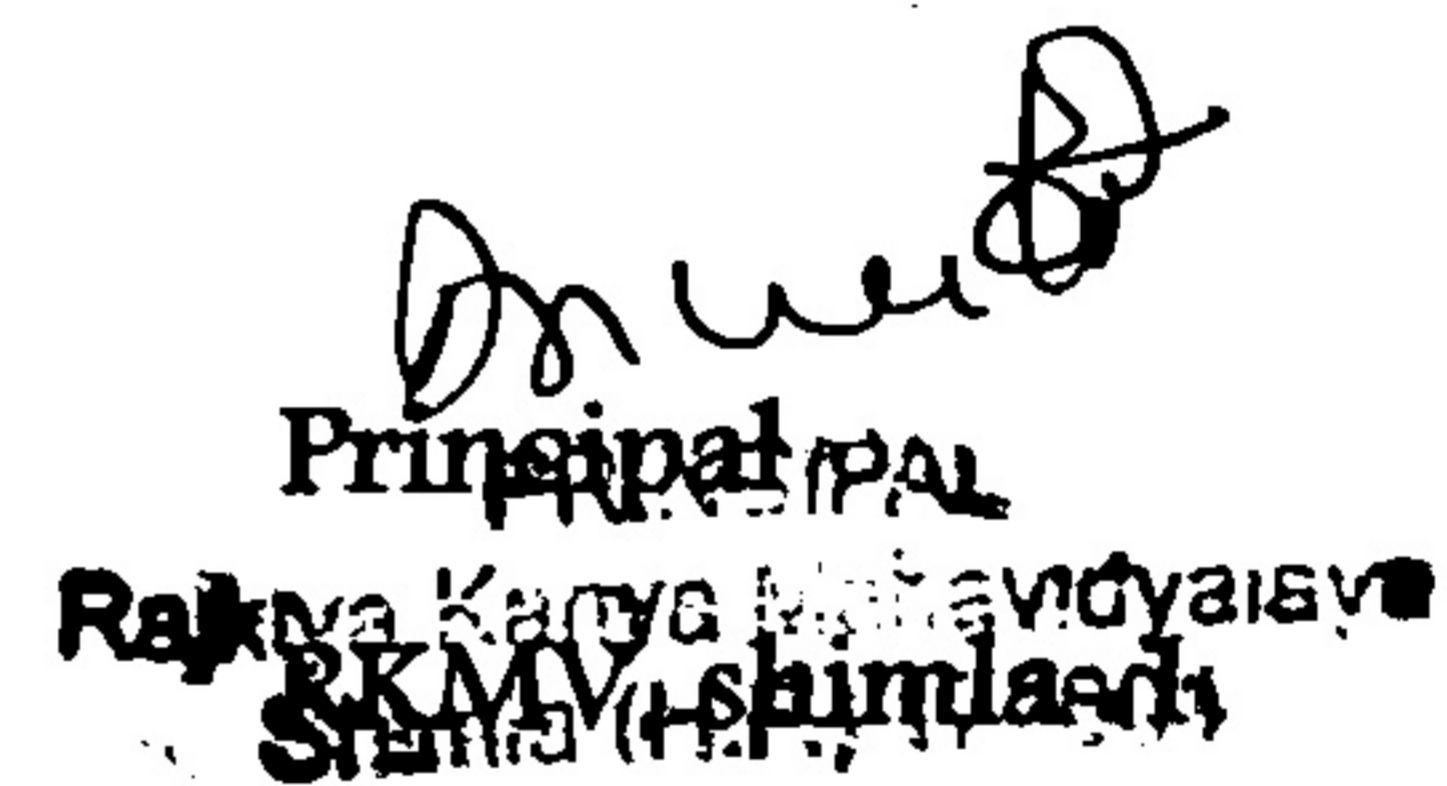 Principal
PRINCIPAL
Rajkiya Kanya Mahavidyalaya
RKMV, shimla
Shimla (H.P.)